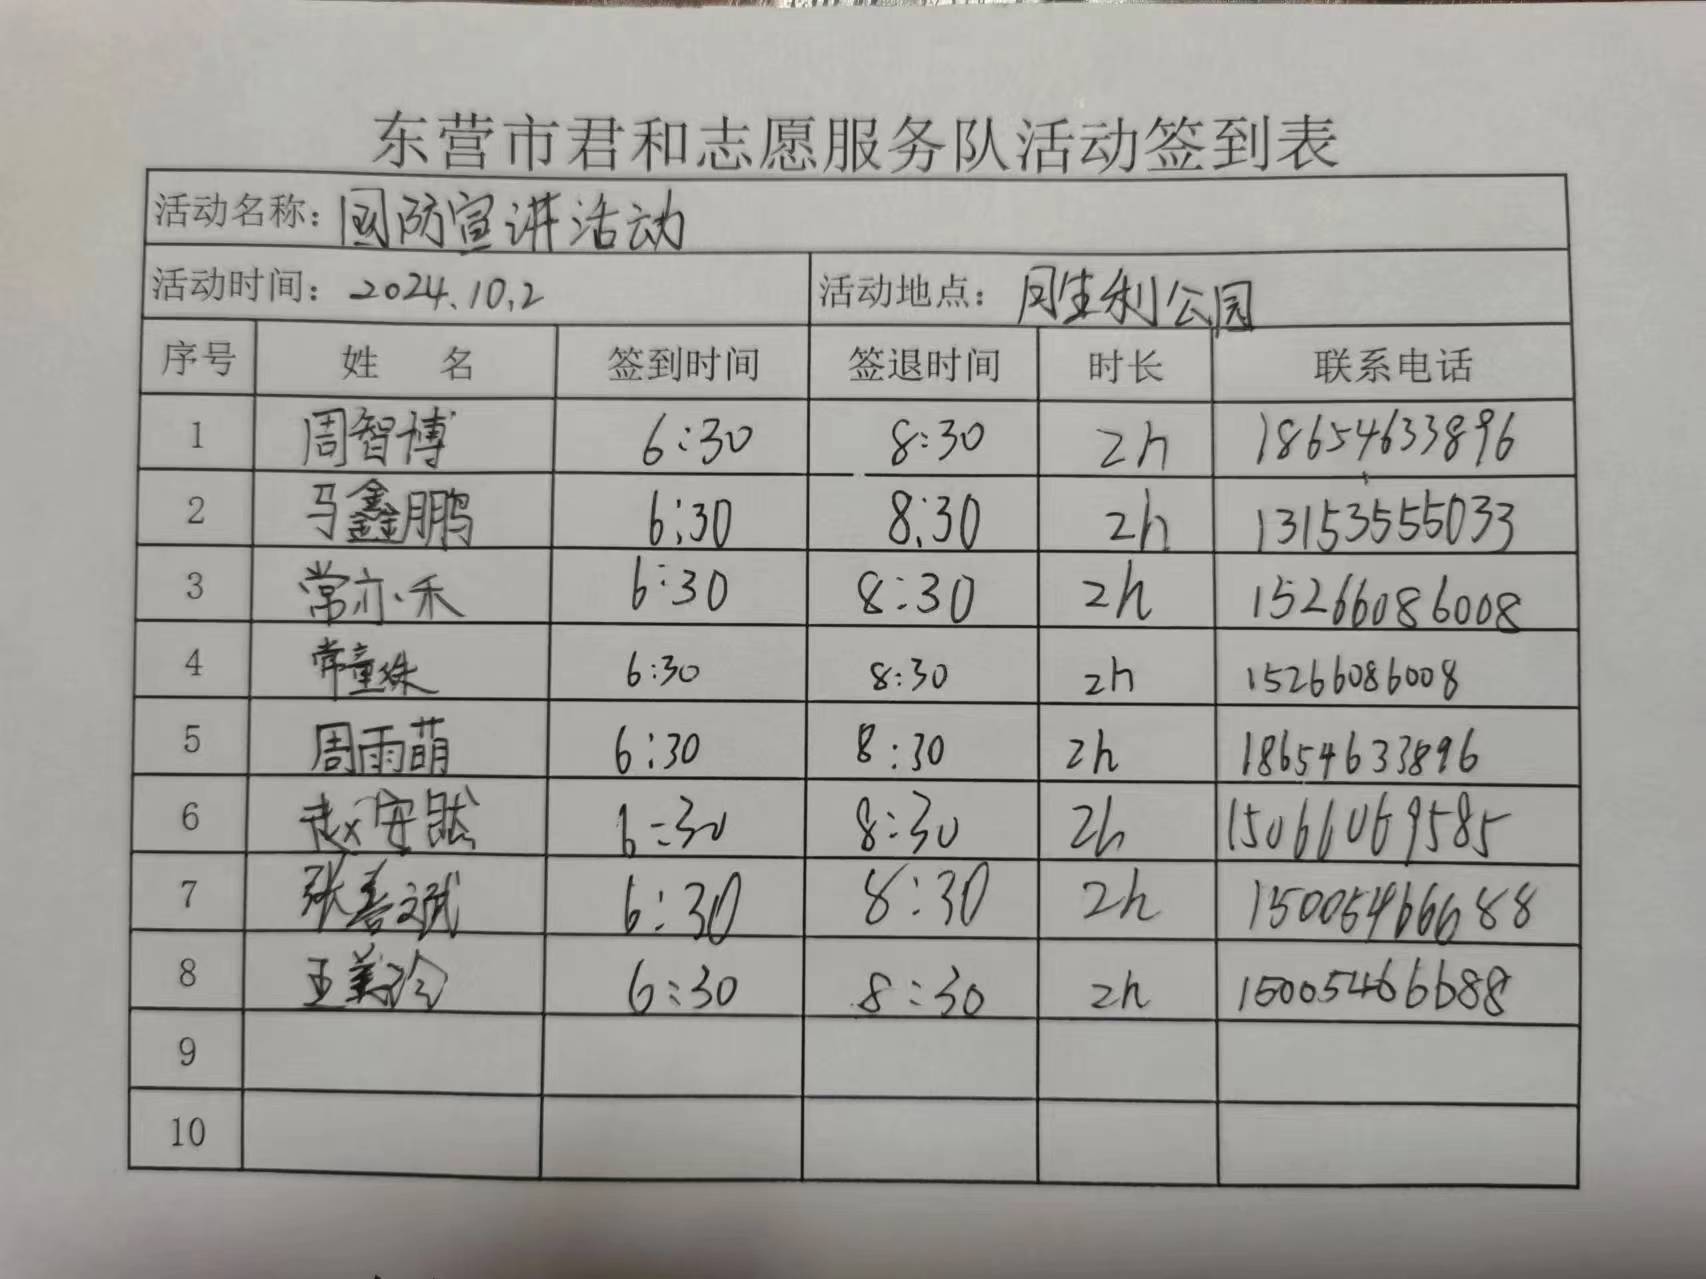 东营市君和志愿服务队活动签到表
活动名称: 国防宣讲活动
活动时间: 2024.10.2 活动地点: 利公园
序号 姓 名 签到时间 签退时间 时长 联系电话
1 周智博 6:30 8:30 2h 18654633896
2 马鑫鹏 6:30 8:30 2h 13153555033
3 常亦禾 6:30 8:30 2h 15266086008
4 常童姝 6:30 8:30 2h 15266086008
5 周雨萌 6:30 8:30 2h 18654633896
6 赵安然 6:30 8:30 2h 15066069585
7 张善斌 6:30 8:30 2h 15005466688
8 王美玲 6:30 8:30 2h 15005466688
9
10